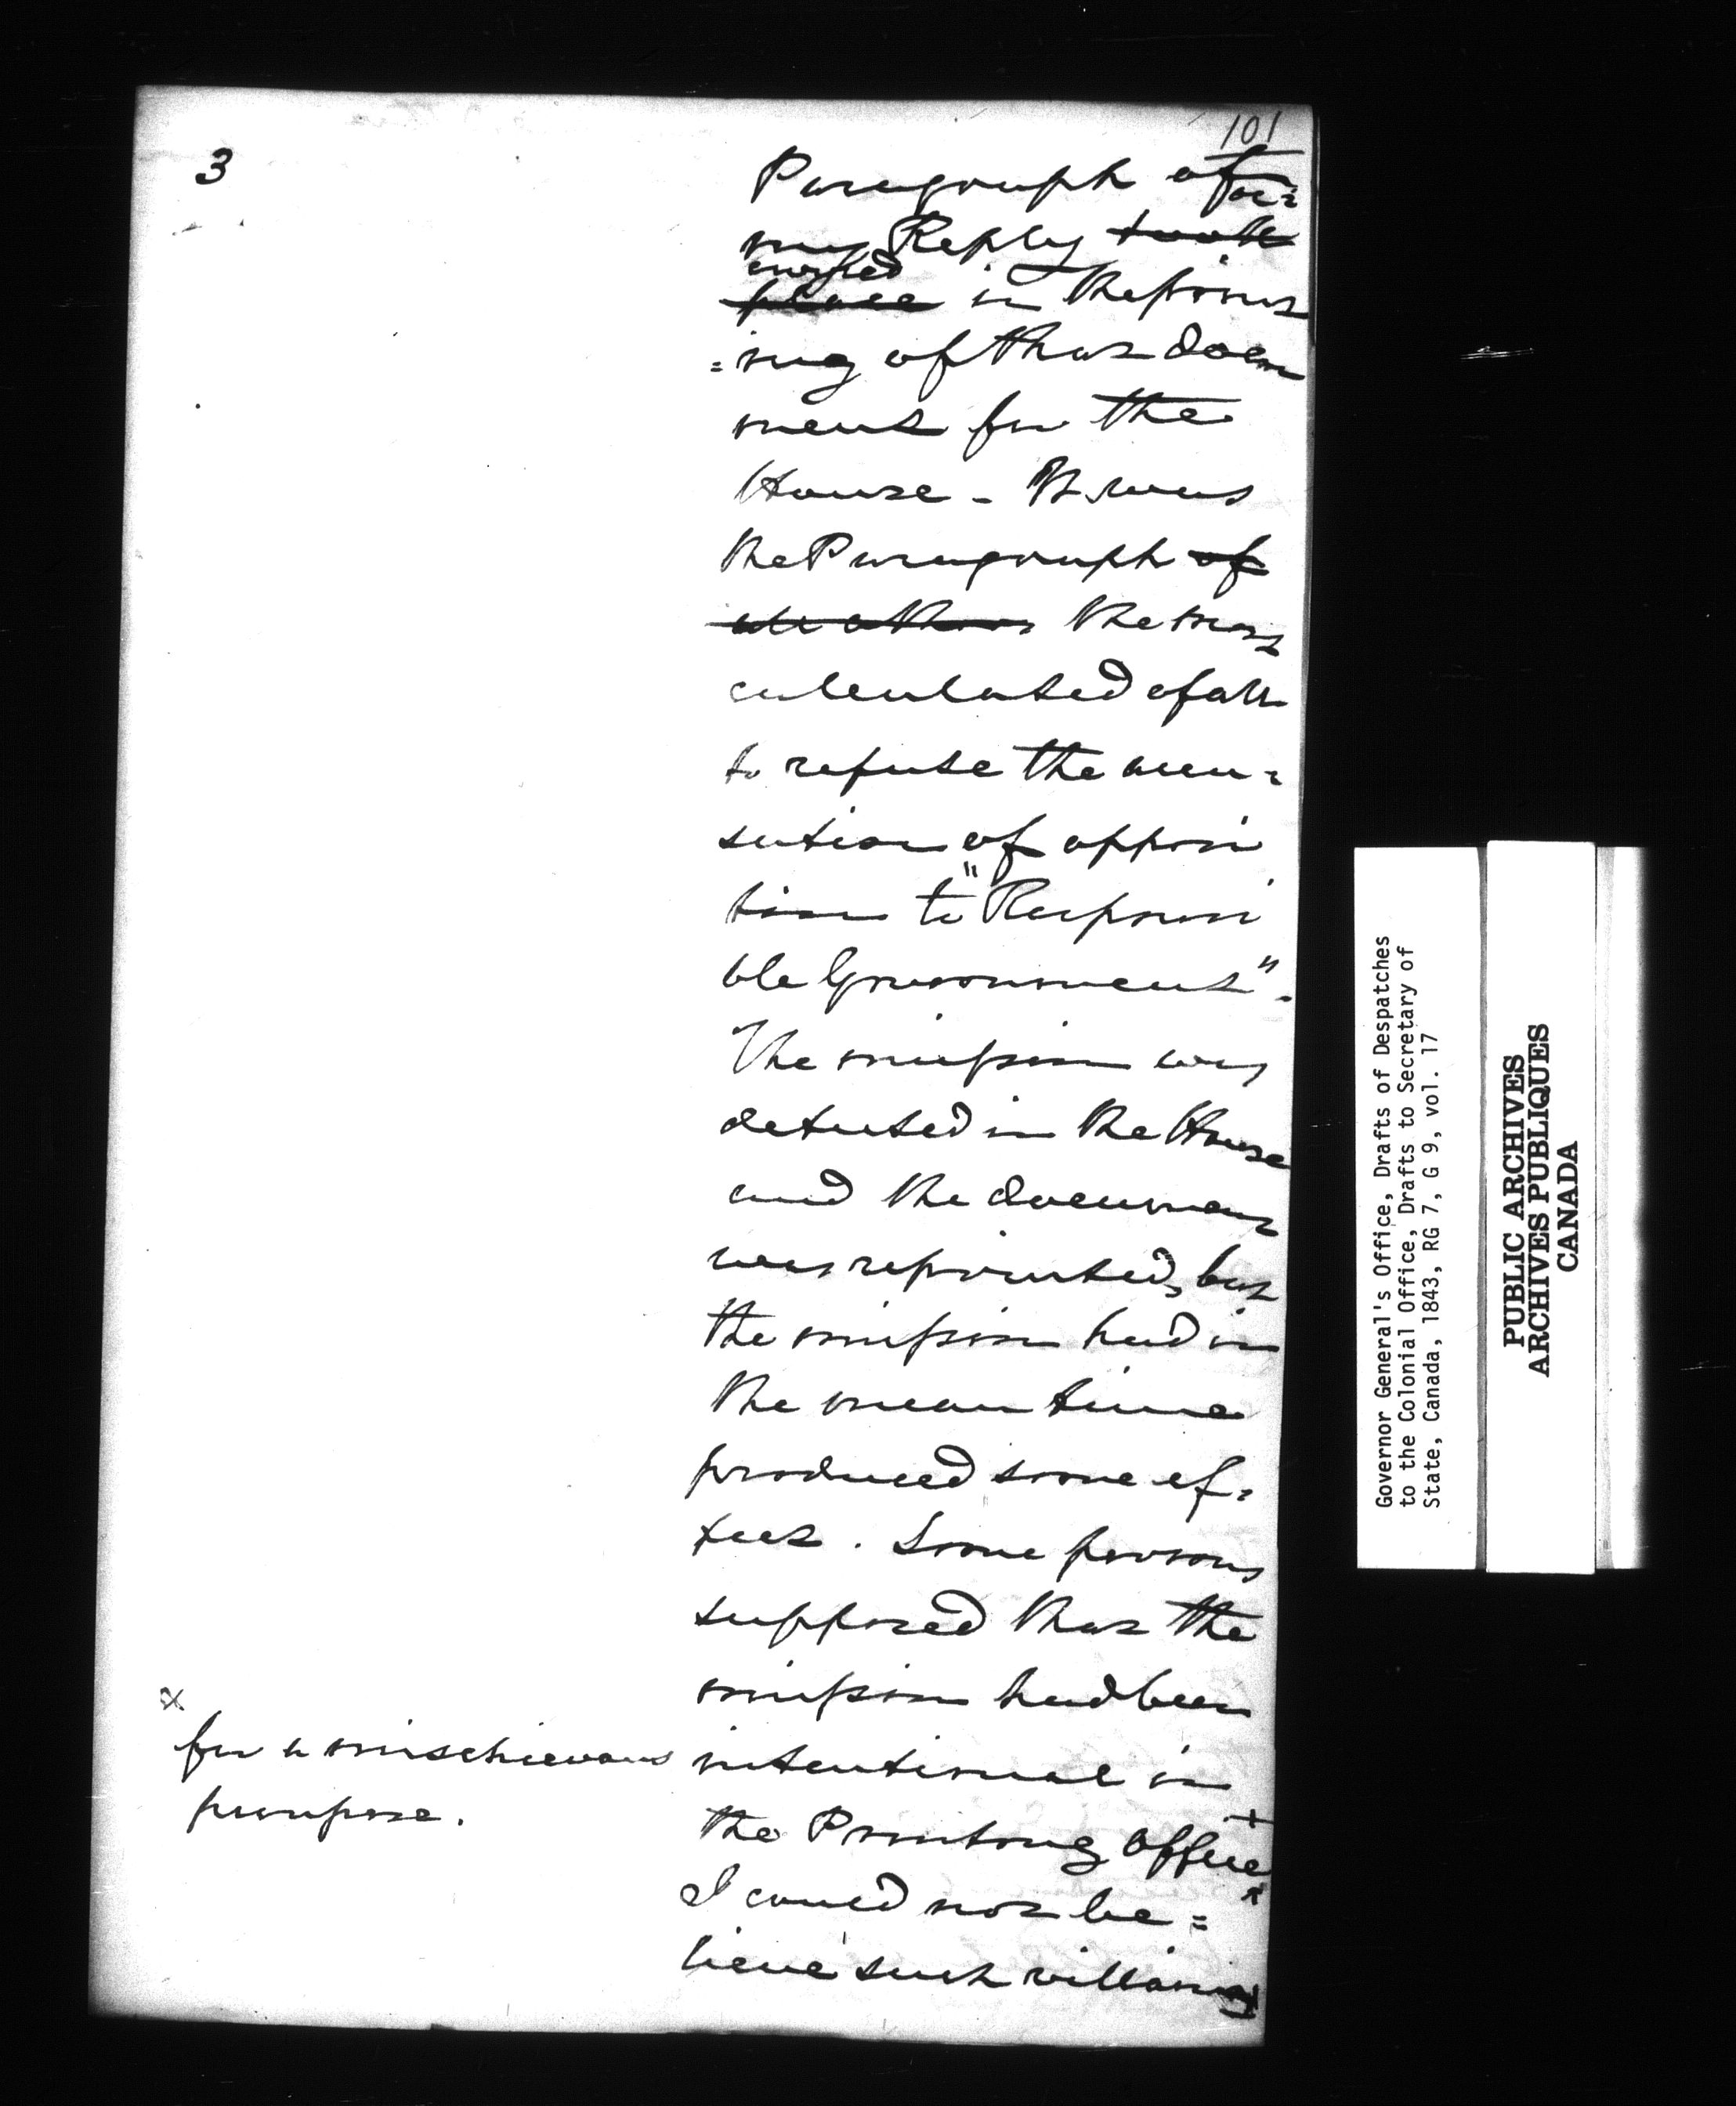 101
3
Paragraph of
my Reply took
occurred
place in the print
=ing of that docu
ment for the
House - It was
the Paragraph of
all others the most
calculated of all
to refute the accu=
sation of opposi
tion to "Responsi
ble Government".
The omission was
detected in the House
and the document
was reprinted, but
the omission had in
the mean time
produced some ef=
fect. Some persons
supposed that the
omission had been
intentional in
the Printing Office
I could not be=
lieve such villainy
x
for a mischievous
purpose.
Governor General's Office, Drafts of Despatches
to the Colonial Office, Drafts to Secretary of
State, Canada, 1843, RG 7, G 9, vol. 17
PUBLIC ARCHIVES
ARCHIVES PUBLIQUES
CANADA